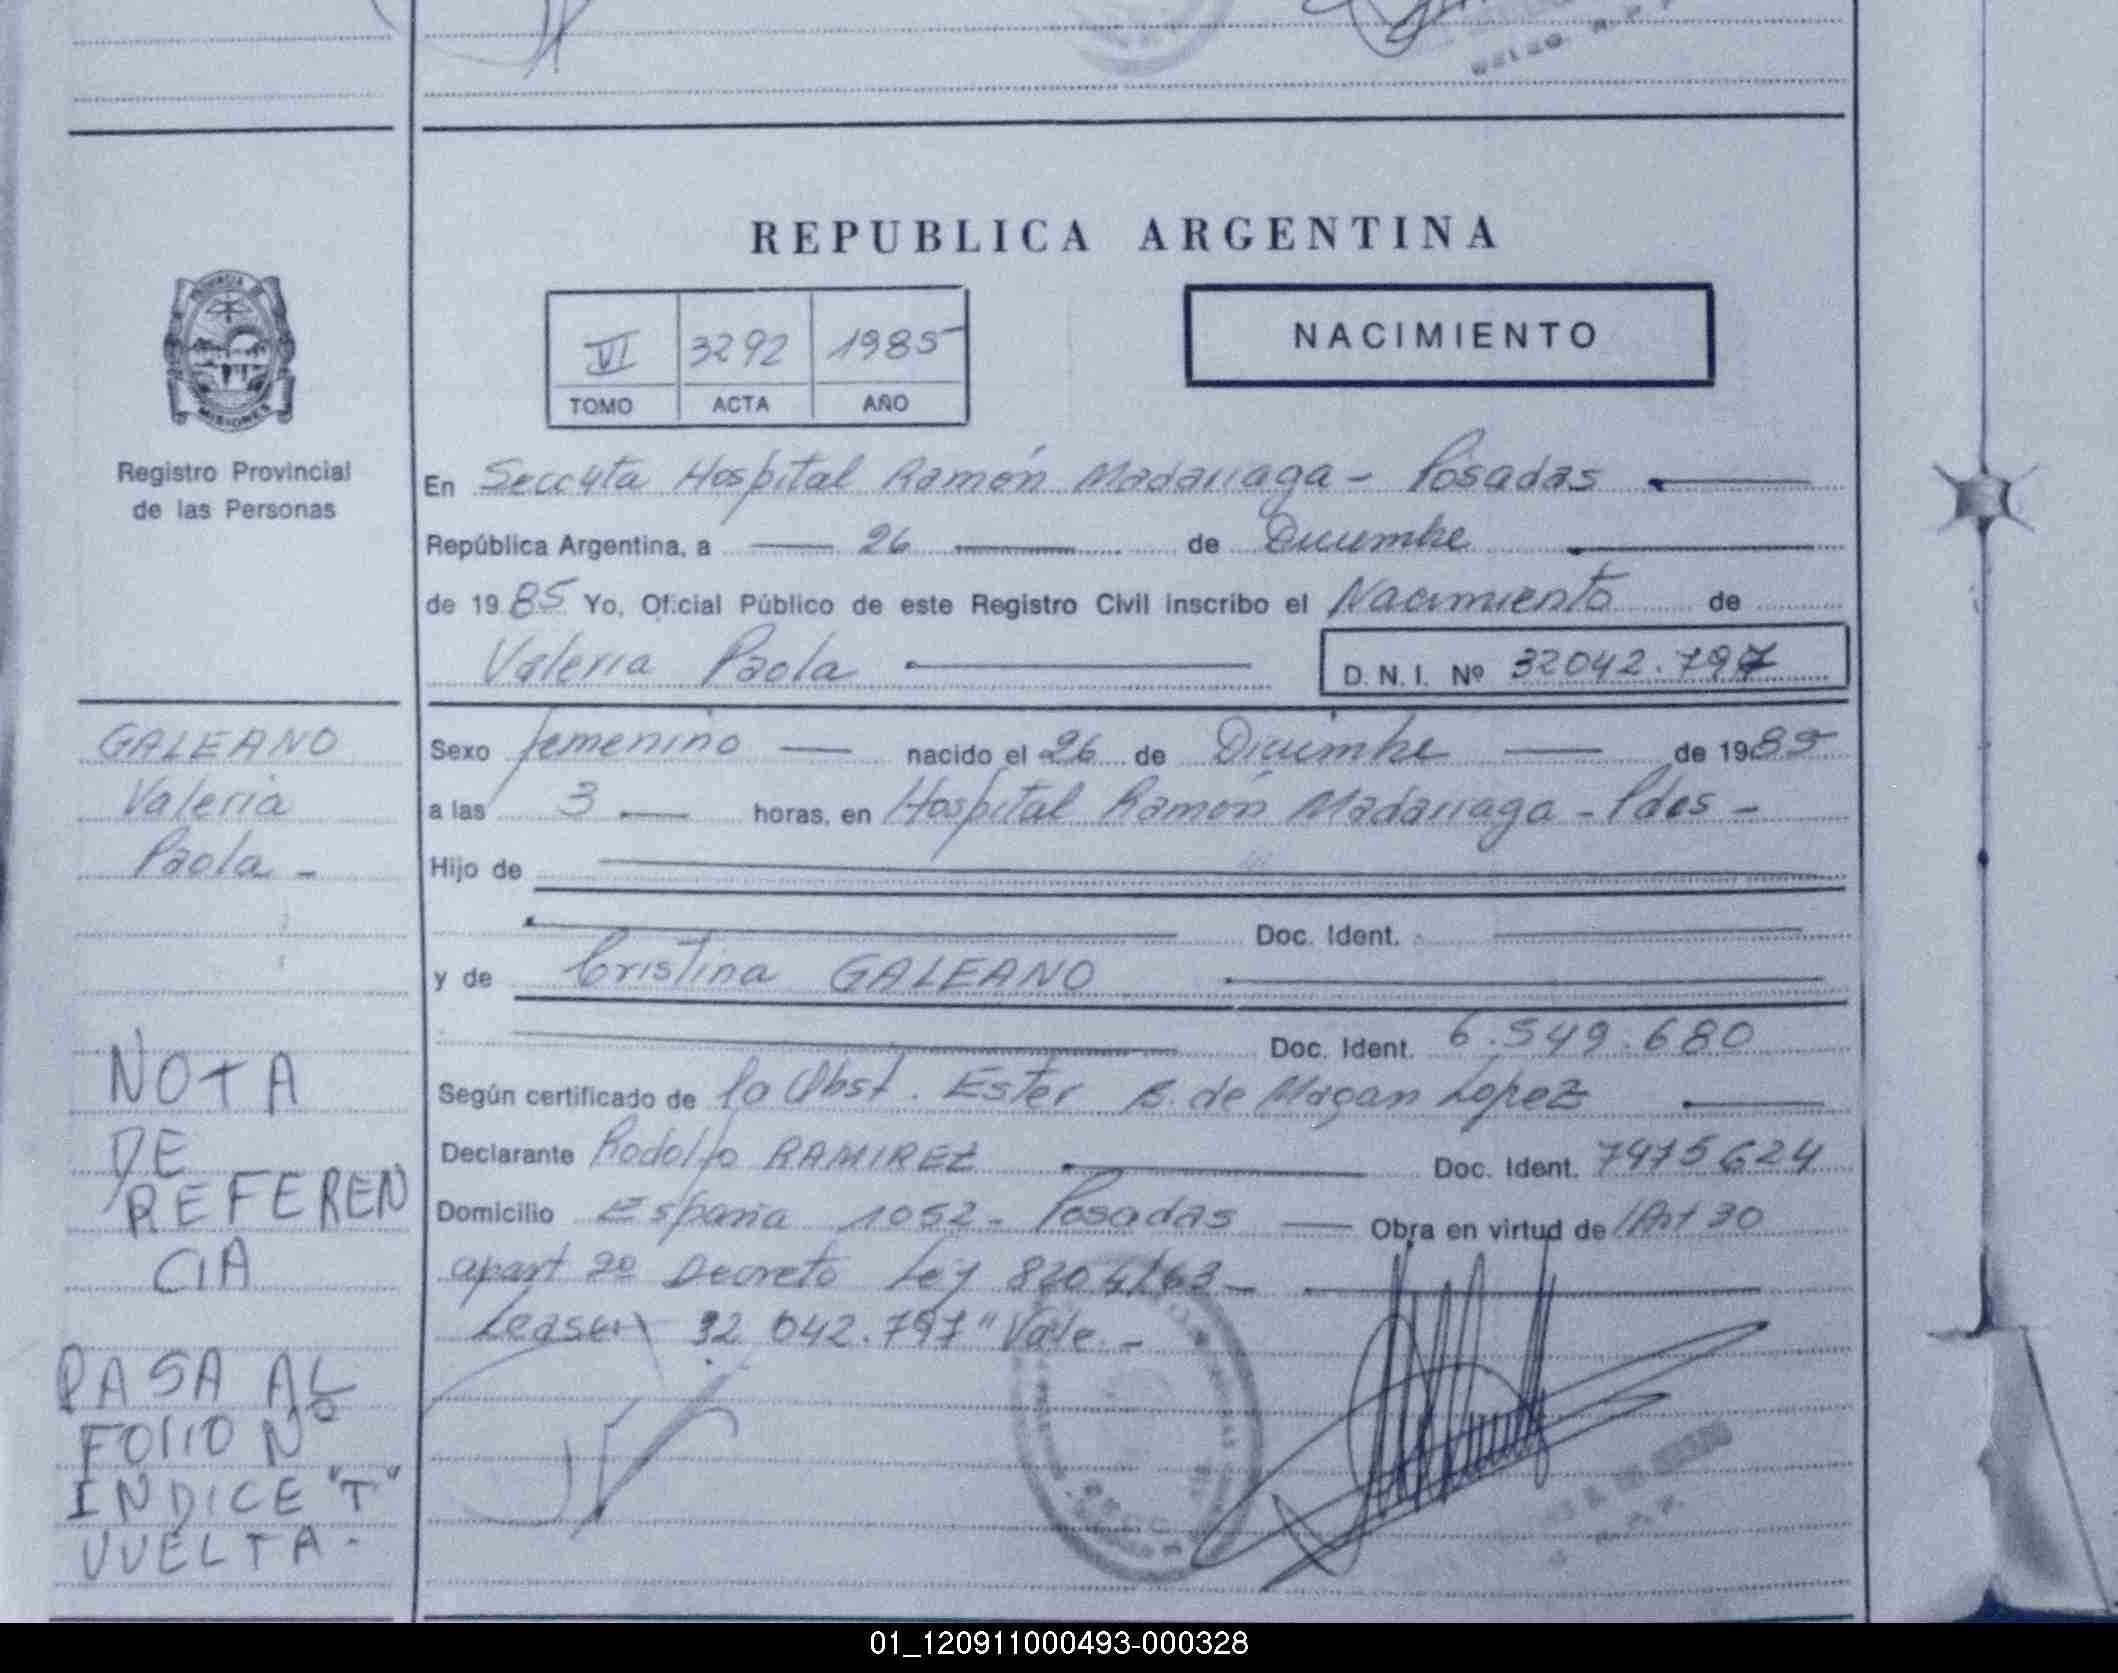 REPUBLICA ARGENTINA
VI 3292 1985
TOMO ACTA AÑO
NACIMIENTO
MISIONES
Registro Provincial
de las Personas
En Secc 4ta Hospital Ramón Madariaga - Posadas
República Argentina, a 26 de Diciembre
de 1985 Yo, Oficial Público de este Registro Civil inscribo el Nacimiento de
Valeria Paola D.N.I. Nº 32042.797
GALEANO
Valeria
Paola -
Sexo femenino nacido el 26 de Diciembre de 1985
a las 3 horas, en Hospital Ramón Madariaga - Pdas -
Hijo de
Doc. Ident.
y de Cristina GALEANO
Doc. Ident. 6.549.680
Según certificado de la Obst. Ester B. de Magan Lopez
Declarante Rodolfo RAMIREZ Doc. Ident. 7475624
Domicilio España 1052 - Posadas Obra en virtud de Art 30
apart 2º Decreto Ley 8204/63 -
32 042.797" Vale. -
NOTA
DE
REFEREN
CIA
PASA AL
FOLIO Nº
INDICE "T"
VUELTA -
01_120911000493-000328